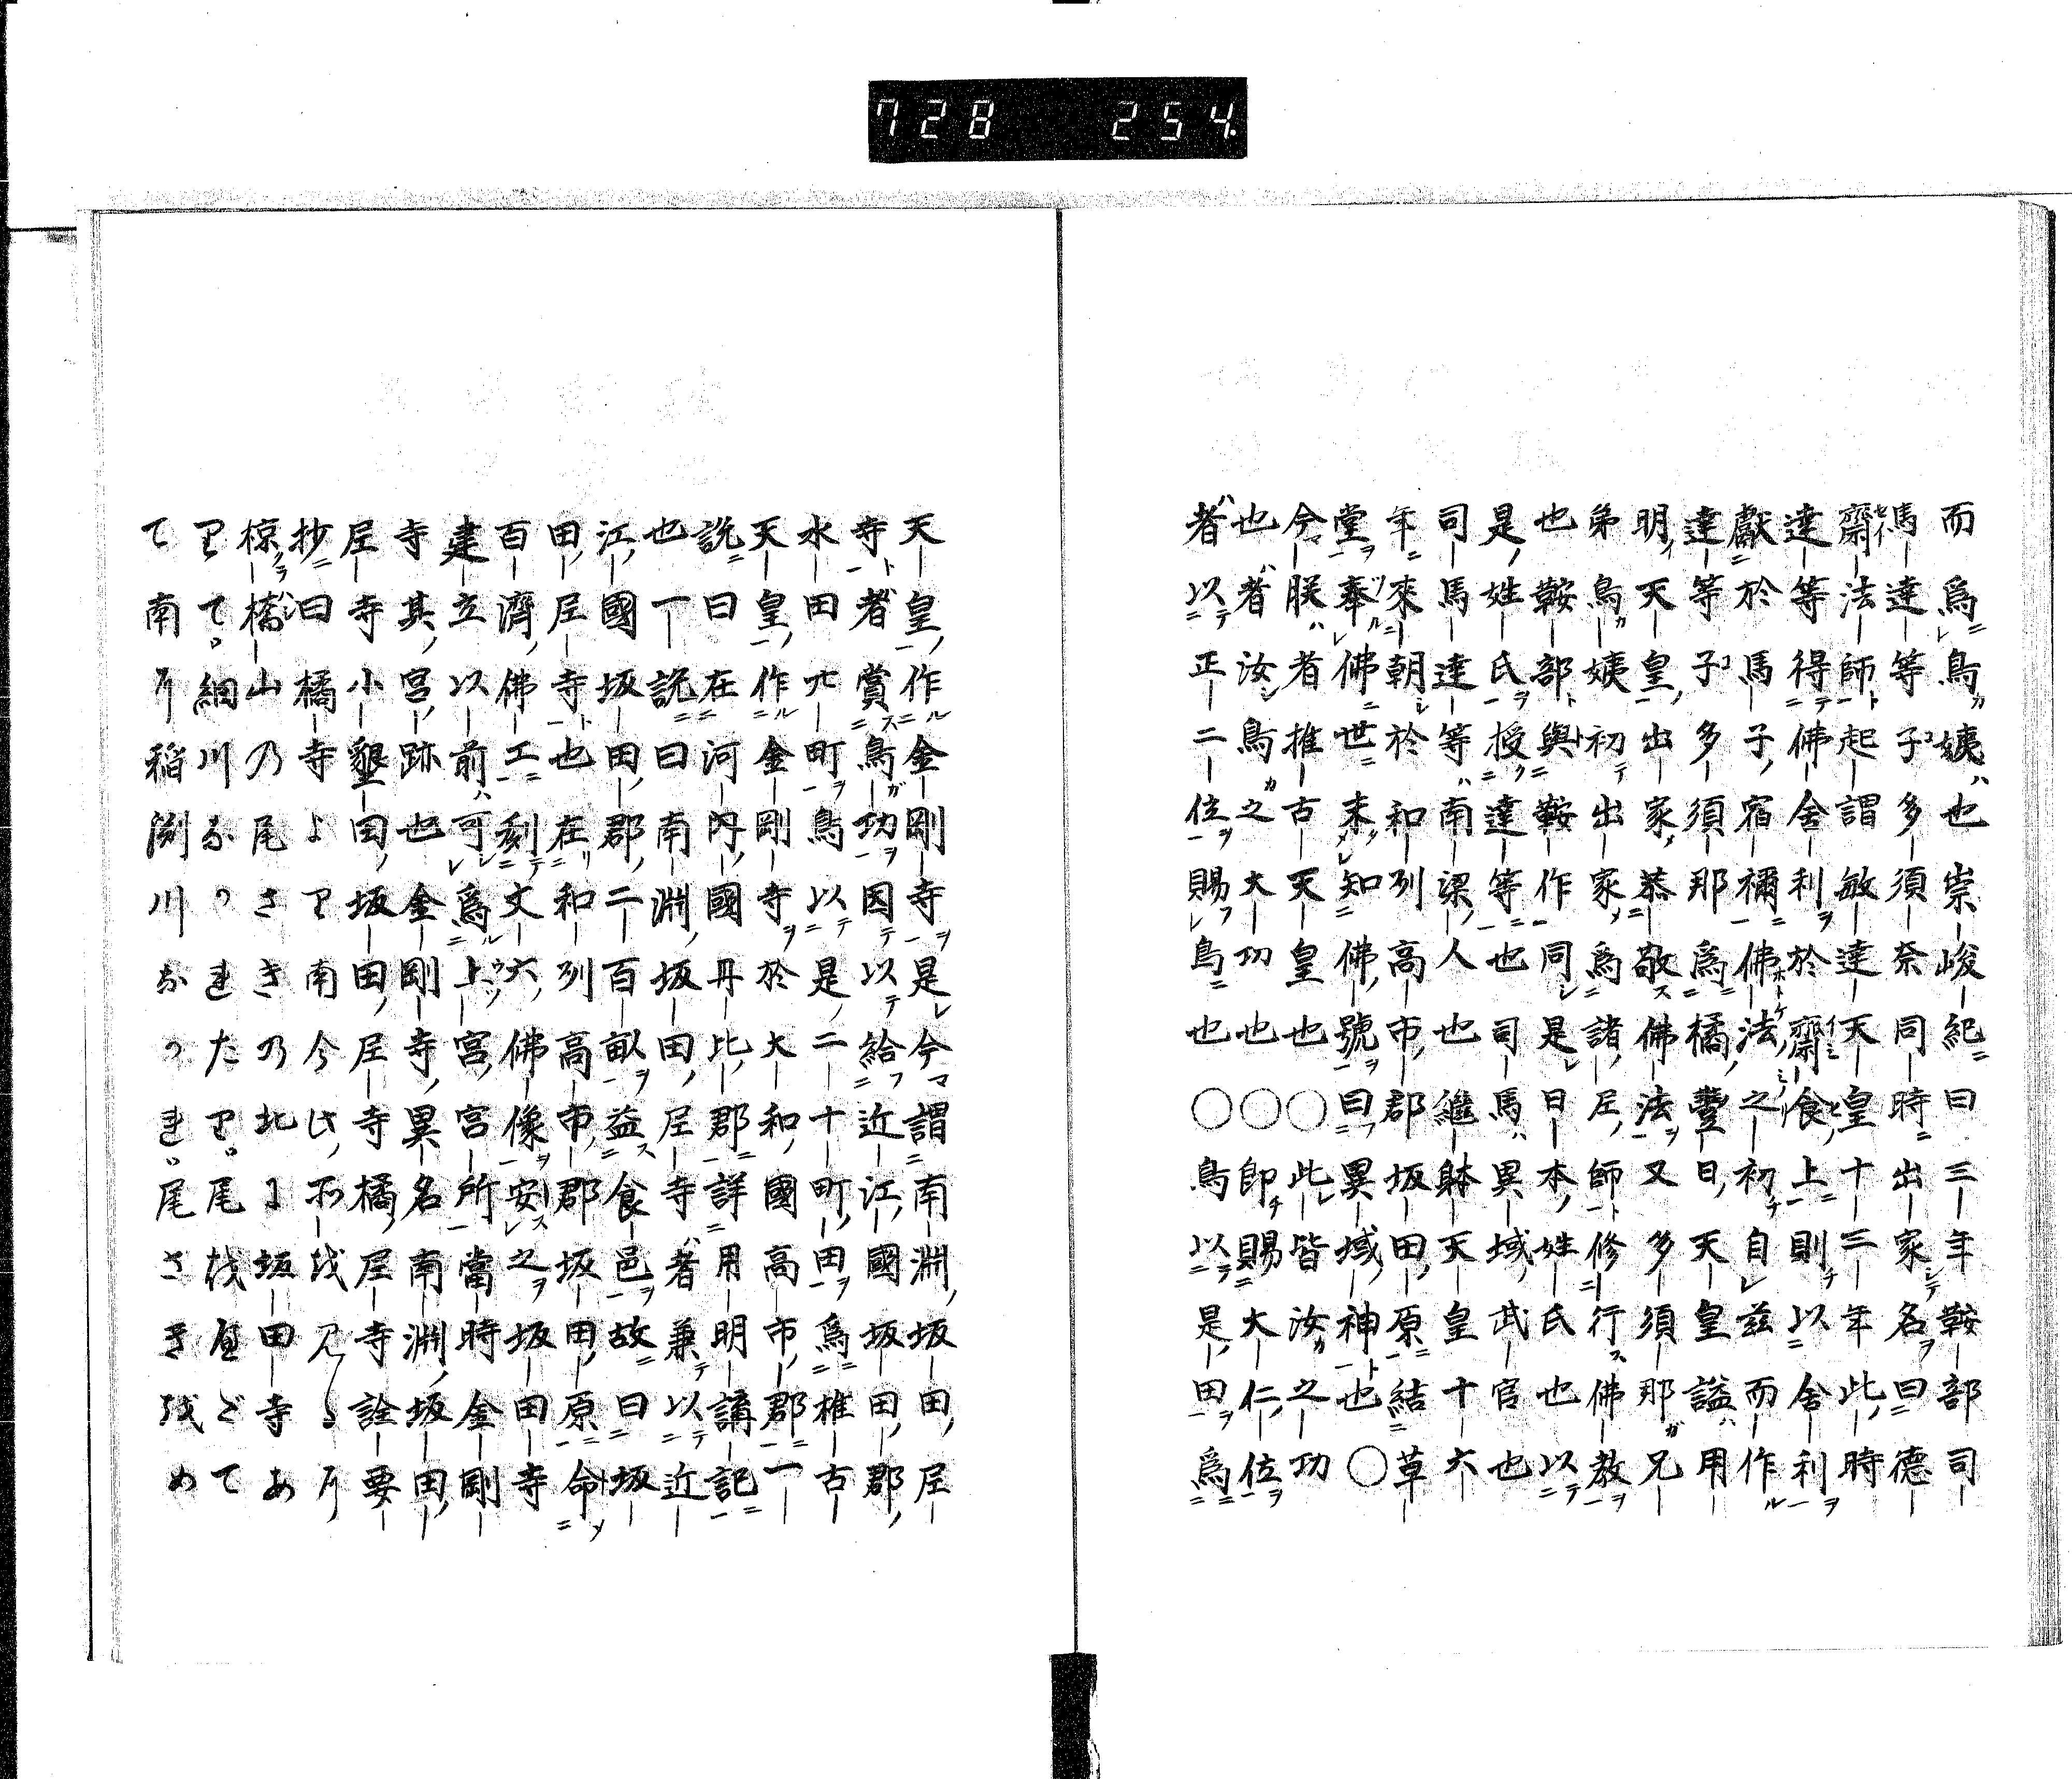 而爲鳥姨也崇峻紀曰三年鞍部司
馬達等子多須奈同時出家名曰德
齋法師起謂敏達天皇十三年此時
達等得佛舍利於齋食上則以舍利
獻於馬子宿禰佛法之初自茲而作
達等子多須那爲橘豐日天皇謚用
明天皇出家恭敬佛法又多須那兄
弟鳥姨初出家爲諸尼師修行佛教
也鞍部與鞍作同是日本姓氏也以
是姓氏授達等也司馬異域武官也
司馬達等南梁人也繼躰天皇十六
年來朝於和刕高市郡坂田原結草
堂奉佛世未知佛號曰異域神也○
今朕者推古天皇也○此皆汝之功
也者汝鳥之大功也○即賜大仁位
者以正二位賜鳥也○鳥以是田爲
天皇作金剛寺是今謂南淵坂田尼
寺者賞鳥功因以給近江國坂田郡
水田廿町鳥以是二十町田爲推古
天皇作金剛寺於大和國高市郡一
説曰在河内國丹比郡詳用明講記
也一説曰南淵坂田尼寺者兼以近
江國坂田郡二百畝益食邑故曰坂
田尼寺也在和刕高市郡坂田原命
百濟佛工刻丈六佛像安之坂田寺
建立以前可爲上宮宮所當時金剛
寺其宮跡也金剛寺異名南淵坂田
尼寺小墾田坂田尼寺橘尼寺詮要
抄曰橘寺より南今此所を見るに
椋橋山の尾さきの北に坂田寺あ
りて細川ながれたり尾をへどて
て南に稲淵川ながれ尾さきをめ